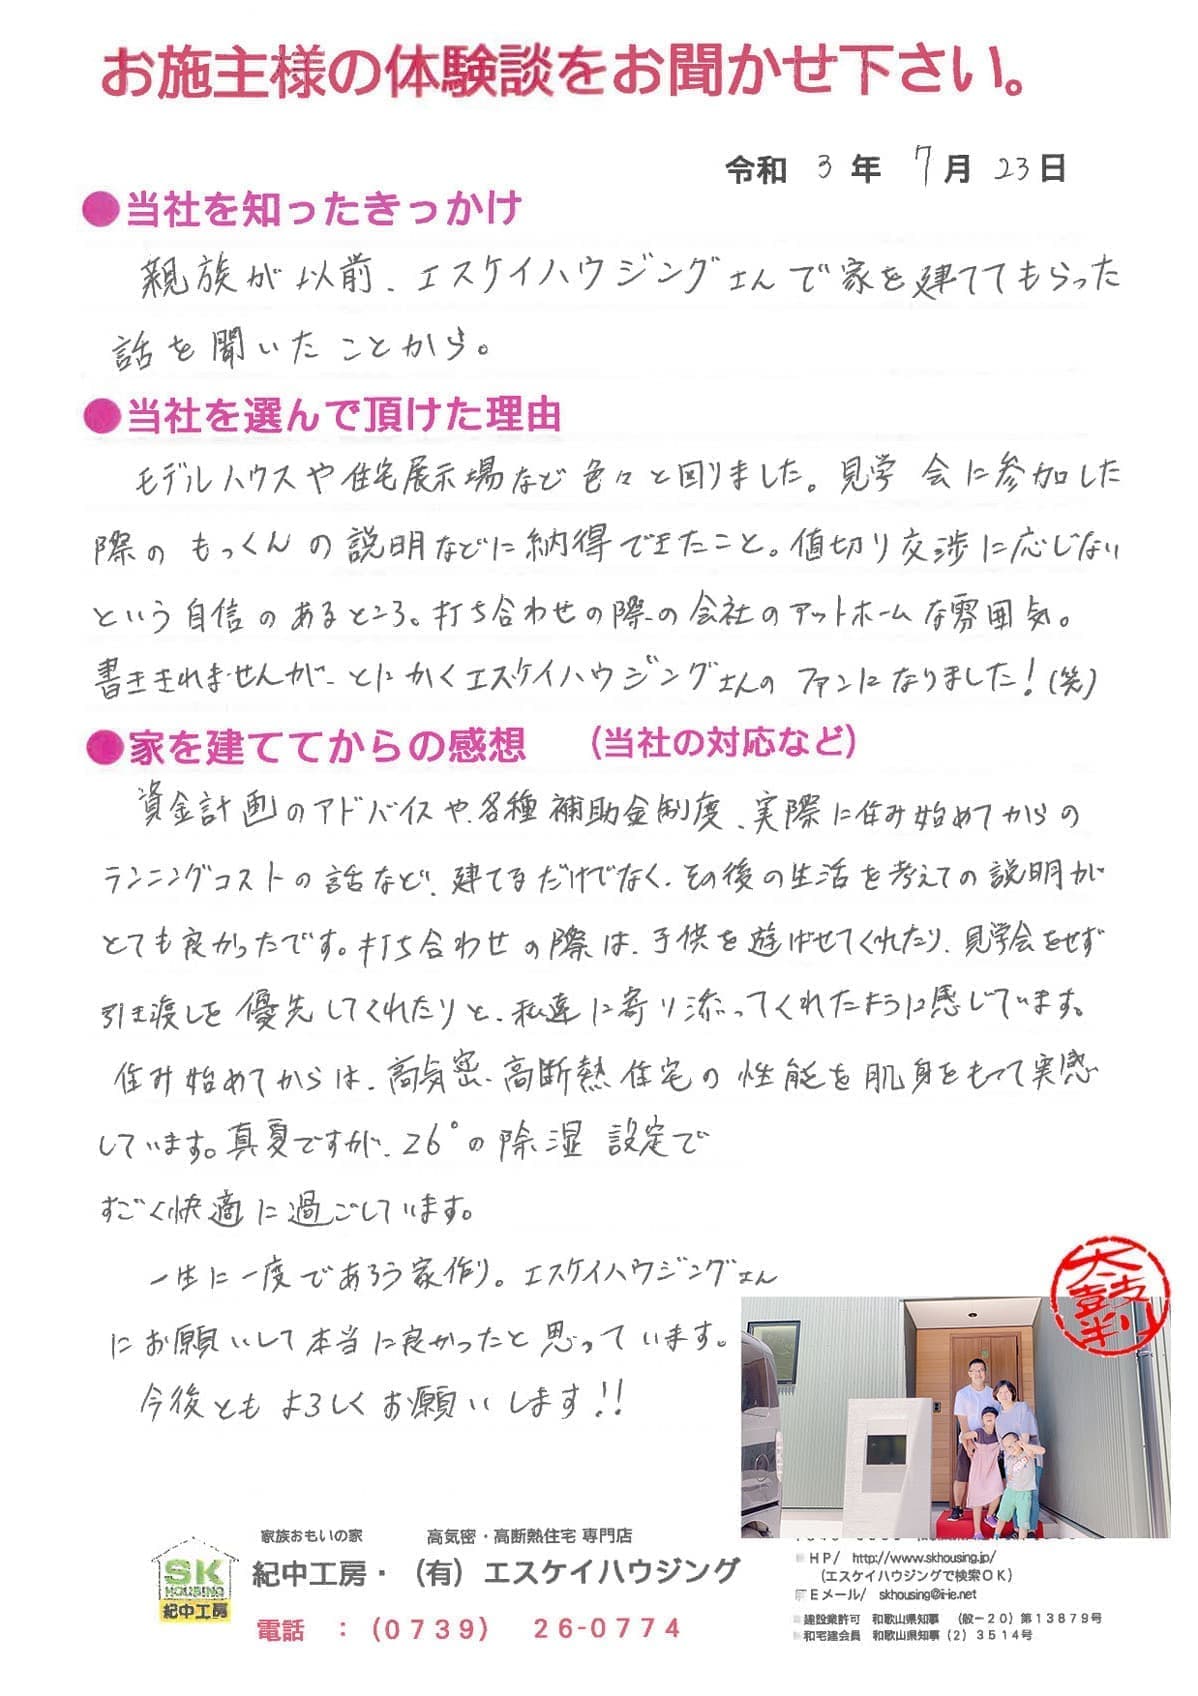 お施主様の体験談をお聞かせ下さい。
令和 3 年 7 月 23 日
●当社を知ったきっかけ
親族が以前、エスケイハウジングさんで家を建ててもらった
話を聞いたことから。
●当社を選んで頂けた理由
モデルハウスや住宅展示場など色々と回りました。見学会に参加した
際のもっくんの説明などに納得できたこと。値切り交渉に応じない
という自信のあるところ。打ち合わせの際の会社のアットホームな雰囲気。
書ききれませんが、とにかくエスケイハウジングさんのファンになりました!(笑)
●家を建ててからの感想 (当社の対応など)
資金計画のアドバイスや、各種補助金制度、実際に住み始めてからの
ランニングコストの話など、建てるだけでなく、その後の生活を考えての説明が
とても良かったです。打ち合わせの際は、子供を遊ばせてくれたり、見学会をせず
引き渡しを優先してくれたりと、私達に寄り添ってくれたように感じています。
住み始めてからは、高気密、高断熱住宅の性能を肌身をもって実感
しています。真夏ですが、26°の除湿設定で
すごく快適に過ごしています。
一生に一度であろう家作り。エスケイハウジングさん
にお願いして本当に良かったと思っています。
今後ともよろしくお願いします!!
太鼓判
家族おもいの家 高気密・高断熱住宅 専門店
SK HOUSING 紀中工房
紀中工房・(有)エスケイハウジング
電話 :(0739) 26-0774
HP/ http://www.skhousing.jp/
(エスケイハウジングで検索OK)
Eメール/ skhousing@i-ie.net
建設業許可 和歌山県知事 (般-20)第13879号
和宅建会員 和歌山県知事(2)3514号